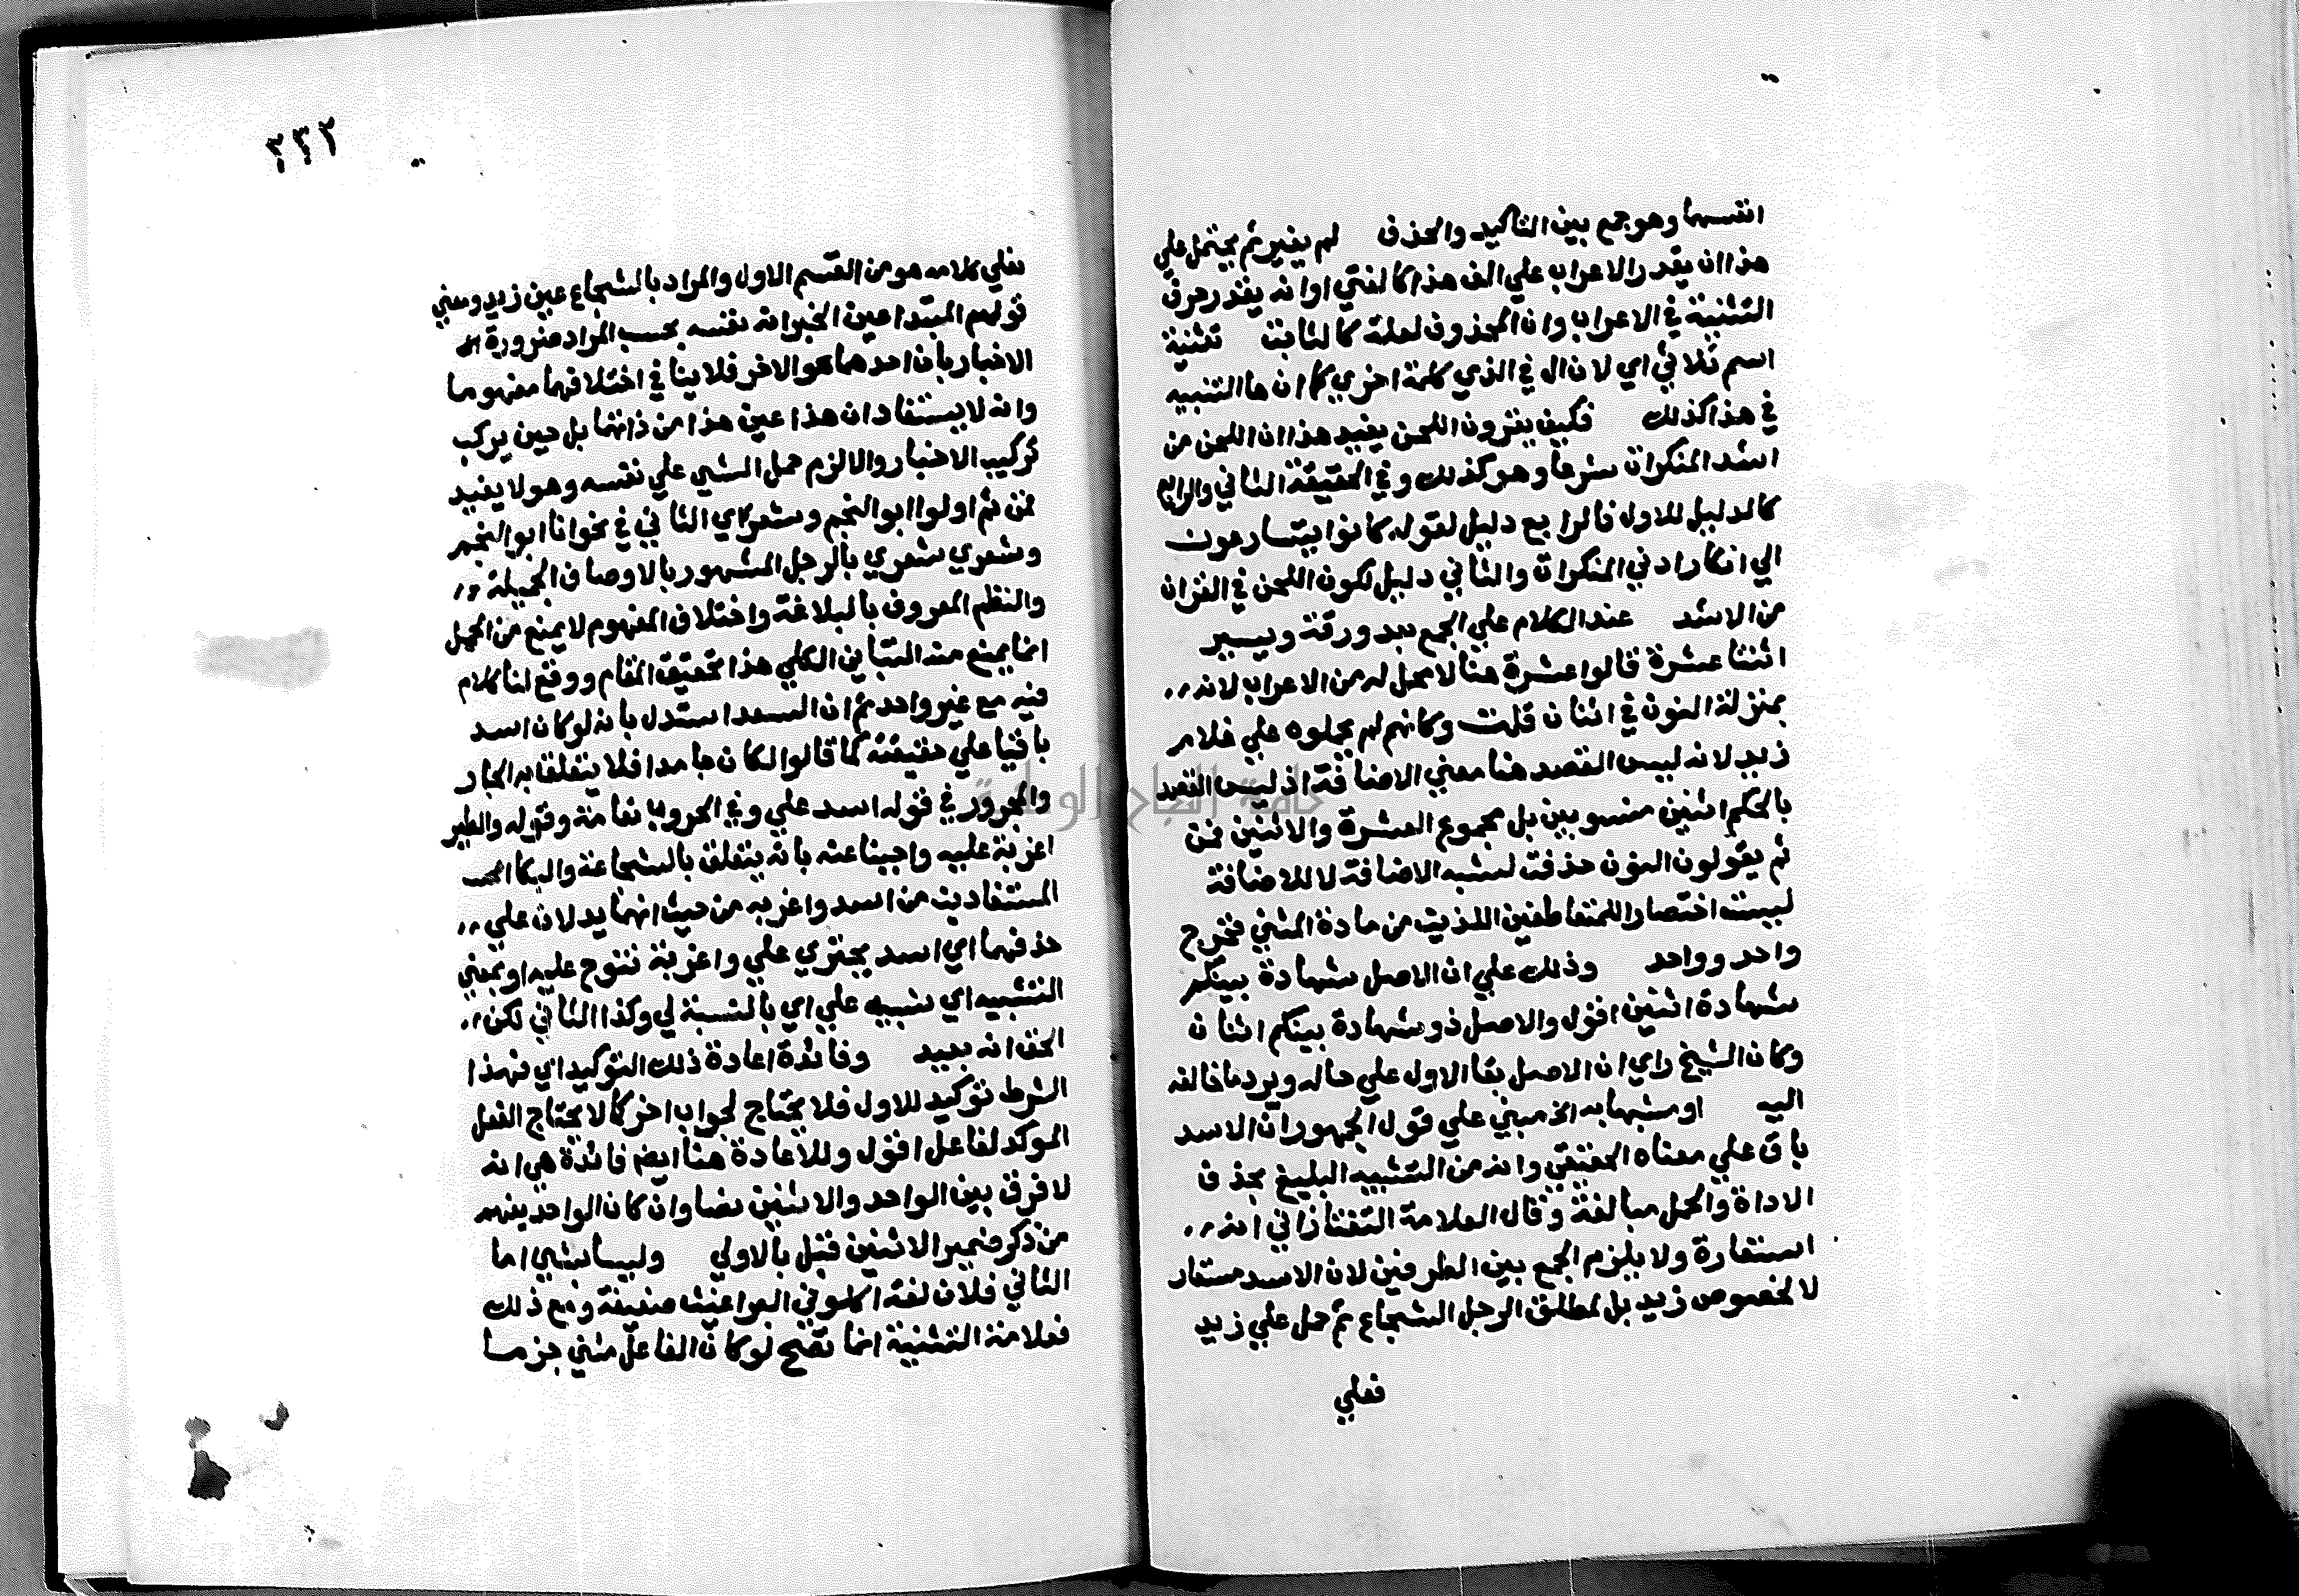 انفسهما وهو جمع بين التاكيد والحذف لم يغير ثم يحتمل علي
هذا ان يقدر الاعراب علي الف هذا كالفتي او انه يقدر حرف
التثنية في الاعراب وان المحذوف لعلة كالثابت تثنية
اسم ثلاثي اي لان ال في الذي كلمة اخري كما ان ها التنبيه
في هذا كذلك فكيف يقرون اللحن يفيد هذا ان اللحن من
اشد المنكرات شرعا وهو كذلك وفي الحقيقة الثاني والرابع
كالدليل للاول فالرابع دليل لقوله كانوا يتسارعون
الي انكار ادني المنكرات والثاني دليل لكون اللحن في القران
من الاشد عند الكلام علي الجمع بعد ورقة ويسير
اثنتا عشرة قالوا عشرة هنا لا محل له من الاعراب لانه
بمنزلة النون في اثنان قلت وكانهم لم يجعلوه علي غلام
زيد لانه ليس القصد هنا معني الاضافة اذ ليس القصد
بالحكم اثنين منسوبين بل مجموع العشرة والاثنين فمن
ثم يقولون النون حذفت لشبه الاضافة لا للاضافة
ليست اختصارا للمتعاطفين اللذين من مادة المثني فخرج
واحد وواحد وذلك علي ان الاصل شهادة بينكم
شهادة اثنين اقول والاصل ذو شهادة بينكم اثنان
وكان الشيخ راي ان الاصل بقا الاول علي حاله ويرد ما خالفه
اليه او مشبها به الخ مبني علي قول الجمهور ان الاسد
باق علي معناه الحقيقي وانه من التشبيه البليغ بحذف
الاداة والحمل مبالغة وقال العلامة التفتازاني انه
استعارة ولا يلزم الجمع بين الطرفين لان الاسد مستعار
لا لخصوص زيد بل لمطلق الرجل الشجاع ثم حمل علي زيد
فعلي
٢٣٢
فعلي كلامه هو من القسم الاول والمراد بالشجاع عين زيد ومعني
قولهم المبتدا عين الخبر انه نفسه بحسب المراد ضرورة
الاخبار بان احدهما هو الاخر فلا ينافي اختلافهما مفهوما
وانه لا يستفاد ان هذا عين هذا من ذاتهما بل حين يركب
تركيب الاخبار والا لزم حمل الشي علي نفسه وهو لا يفيد
فمن ثم اولوا ابو النجم وشعري الثاني في نحو انا ابو النجم
وشعري شعري بالرجل المشهور بالاوصاف الجميلة
والنظم المعروف بالبلاغة واختلاف المفهوم لا يمنع من الحمل
انما يمنع منه التباين الكلي هذا تحقيق المقام ووقع لنا كلام
فيه مع غير واحد ثم ان السعد استدل بانه لو كان اسد
باقيا علي حقيقته كما قالوا لكان جامدا فلا يتعلق به الجار
والمجرور في قوله اسد علي وفي الحروب نعامة وقوله والطير
اغربة عليه واجيبنا عنه بانه يتعلق بالشجاعة والبكا
المستفادين من اسد واغربه من حيث انهما يدلان علي
حذفهما اي اسد يجتري علي واغربة تنوح عليه او بمعني
التشبيه اي شبيه علي اي بالنسبة لي وكذا الثاني لكن
الحق انه بعيد وفائدة اعادة ذلك التوكيد اي فهذا
الشرط توكيد للاول فلا يحتاج لجواب اخر كما لا يحتاج الفعل
الموكد لفاعل اقول وللاعادة هنا ايضم فائدة هي انه
لا فرق بين الواحد والاثنين نصا وان كان الواحد يفهم
من ذكر ضمير الاثنين قبل بالاولي وليسا بشي اما
الثاني فلان لغة اكلوني البراغيث ضعيفة ومع ذلك
فعلامة التثنية انما تصح لو كان الفاعل مثني جزما
جامعة النجاح الوطنية